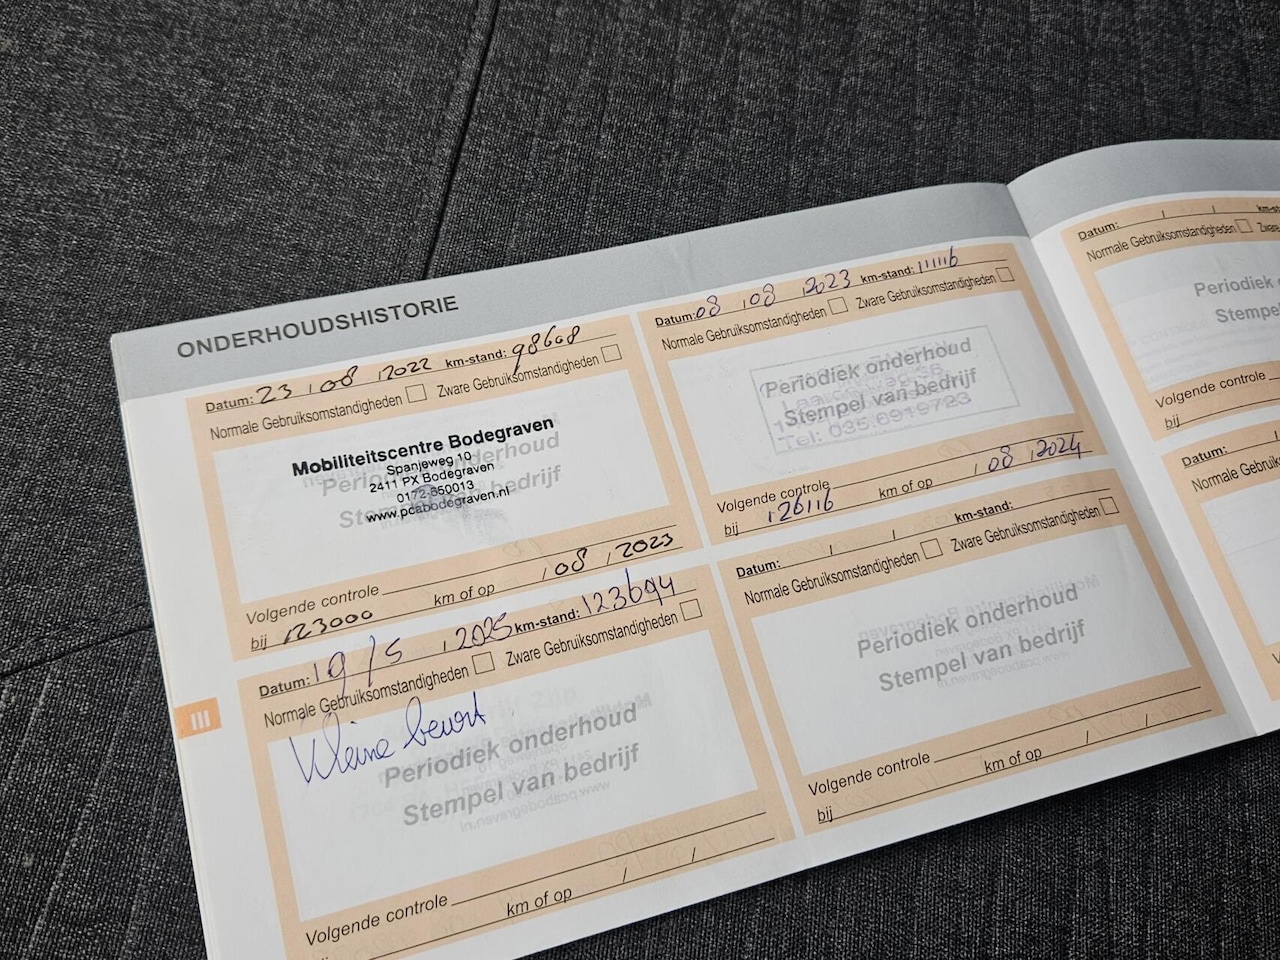 ONDERHOUDSHISTORIE
Datum: 23 / 08 / 2022 km-stand: 98608
Normale Gebruiksomstandigheden Zware Gebruiksomstandigheden
Mobiliteitscentre Bodegraven
Spanjeweg 10
2411 PX Bodegraven
0172-650013
www.pcabodegraven.nl
Periodiek onderhoud
Stempel van bedrijf
Volgende controle
bij 123000 km of op / 08 / 2023
Datum: 08 / 08 / 2023 km-stand: 111116
Normale Gebruiksomstandigheden Zware Gebruiksomstandigheden
Periodiek onderhoud
Stempel van bedrijf
Tel: 035.6919723
Volgende controle
bij 126116 km of op / 08 / 2024
Datum: 19 / 5 / 2025 km-stand: 123694
Normale Gebruiksomstandigheden Zware Gebruiksomstandigheden
Kleine beurt
Periodiek onderhoud
Stempel van bedrijf
Volgende controle
bij km of op / /
Datum: / / km-stand:
Normale Gebruiksomstandigheden Zware Gebruiksomstandigheden
Periodiek onderhoud
Stempel van bedrijf
Volgende controle
bij km of op / /
III
Datum: / / km-st
Normale Gebruiksomstandigheden Zware
Periodiek
Stempel
Volgende controle
bij
Datum:
Normale Gebruiksomstandig